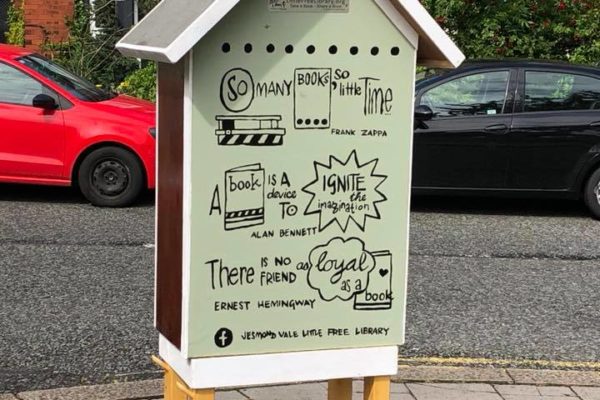 LittleFreeLibrary.org
Take a Book • Share a Book
SO MANY BOOKS, so little Time
FRANK ZAPPA
A book IS A device TO IGNITE the imagination
ALAN BENNETT
There IS NO FRIEND as loyal as a book
ERNEST HEMINGWAY
f JESMOND VALE LITTLE FREE LIBRARY